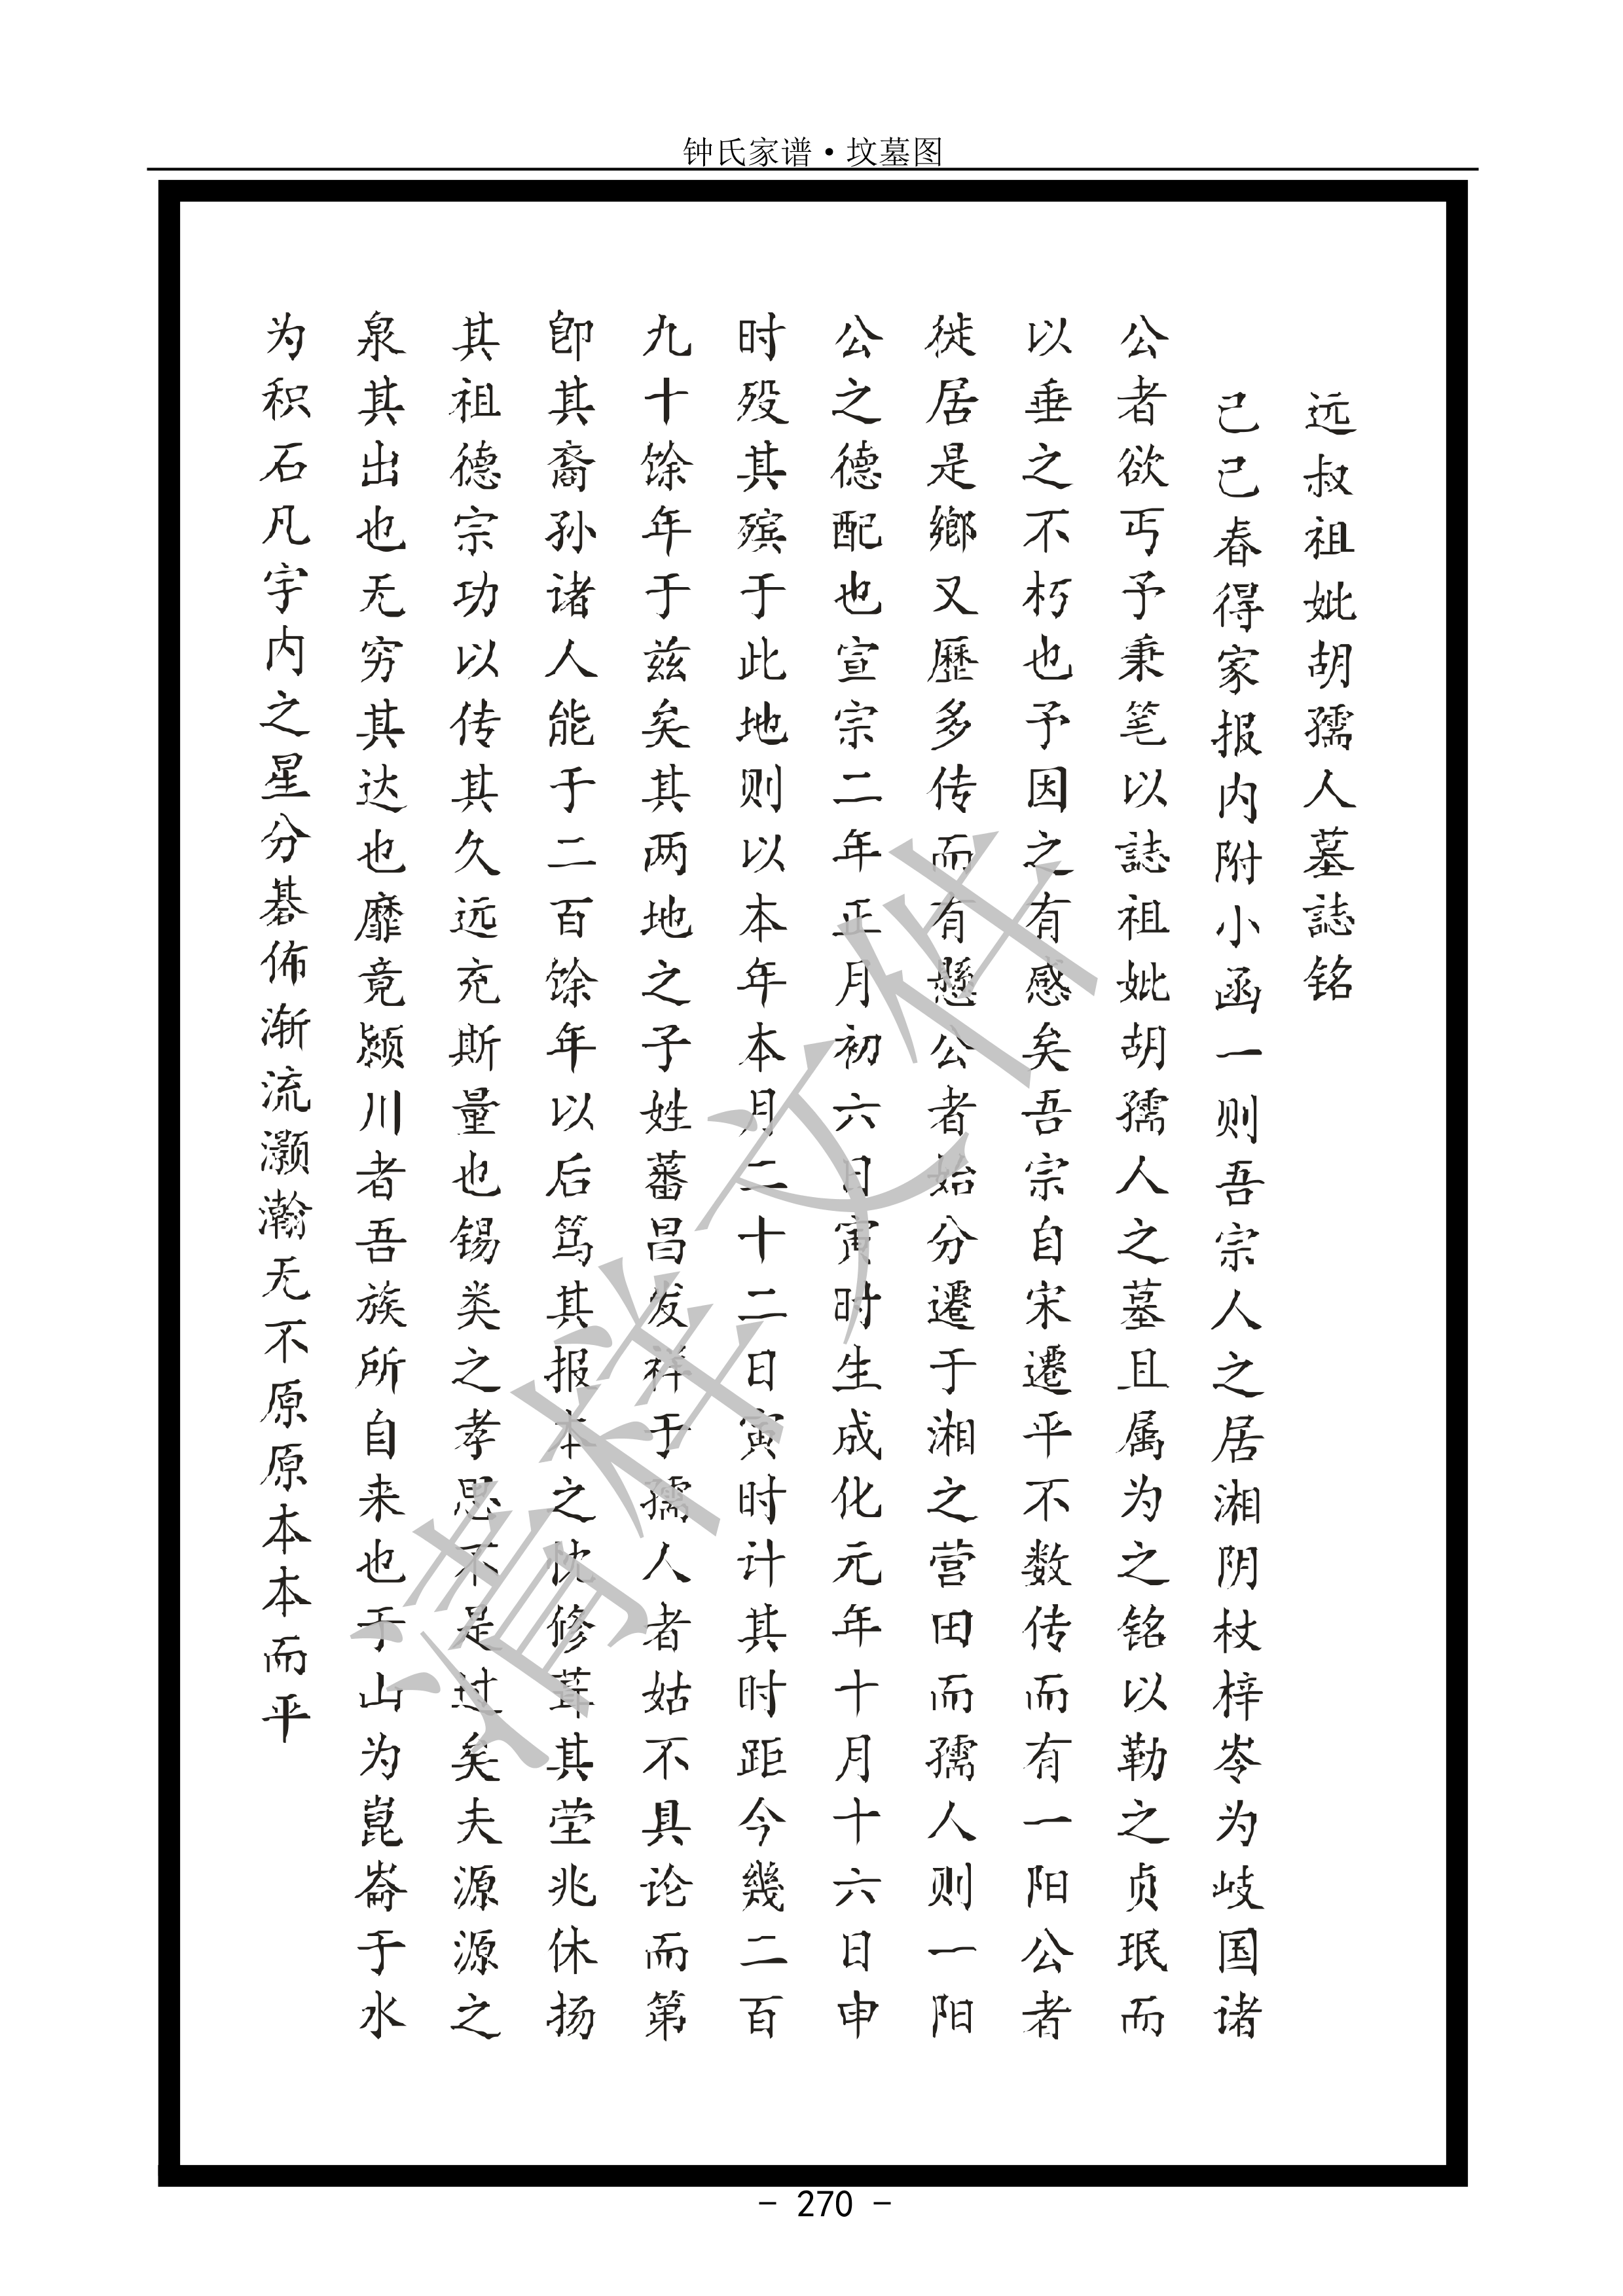 钟氏家谱·坟墓图
远叔祖妣胡孺人墓誌铭
己己春得家报内附小函一则吾宗人之居湘阴杖梓岑为歧国诸
公者欲丐予秉笔以誌祖妣胡孺人之墓且属为之铭以勒之贞珉而
以垂之不朽也予因之有感矣吾宗自宋遷平不数传而有一阳公者
徙居是鄉又歷多传而有懸公者始分遷于湘之营田而孺人则一阳
公之德配也宣宗二年正月初六日寅时生成化元年十月十六日申
时殁其殡于此地则以本年本月二十二日寅时计其时距今幾二百
九十馀年于兹矣其两地之子姓蕃昌发祥于孺人者姑不具论而第
卽其裔孙诸人能于二百馀年以后笃其报本之忱修茸其茔兆休扬
其祖德宗功以传其久远充斯量也锡类之孝思不是过矣夫源源之
泉其出也无穷其达也靡竟颍川者吾族所自来也于山为崑崙于水
为积石凡宇内之星分碁佈渐流灏瀚无不原原本本而平
清样文件
- 270 -